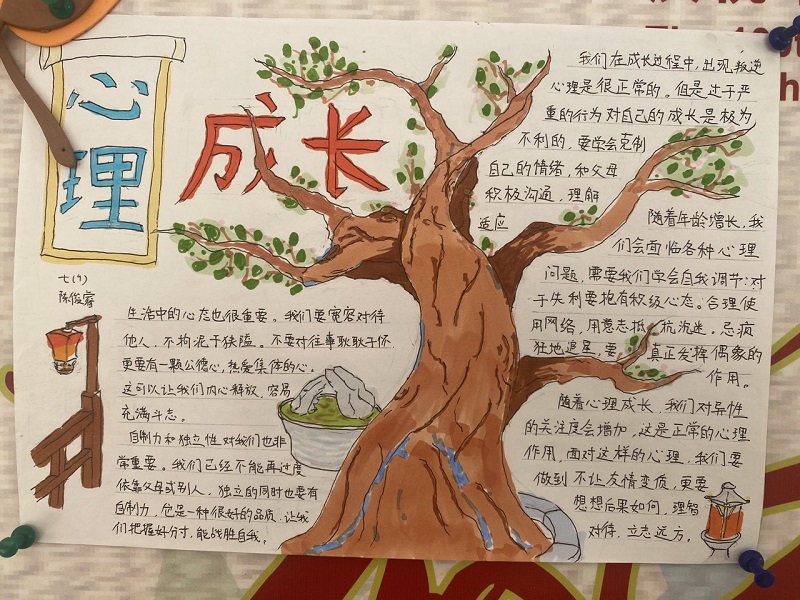 心理
成长
七(9)
陈俊睿
生活中的心态也很重要。我们要宽容对待
他人，不拘泥于狭隘。不要对往事耿耿于怀，
更要有一颗公德心，热爱集体的心。
这可以让我们内心释放，容易
充满斗志。
自制力和独立性对我们也非
常重要。我们已经不能再过度
依靠父母或别人，独立的同时也要有
自制力，它是一种很好的品质，让我
们把握好分寸，能战胜自我。
我们在成长过程中，出现叛逆
心理是很正常的。但是过于严
重的行为对自己的成长是极为
不利的，要学会克制
自己的情绪，和父母
积极沟通，理解
适应
随着年龄增长，我
们会面临各种心理
问题，需要我们学会自我调节：对
于失利要抱有积极心态。合理使
用网络，用意志抵抗沉迷。忌疯
狂地追星，要真正发挥偶像的
作用。
随着心理成长，我们对异性
的关注度会增加，这是正常的心理
作用，面对这样的心理，我们要
做到不让友情变质，更要
想想后果如何，理智
对待，立志远方。